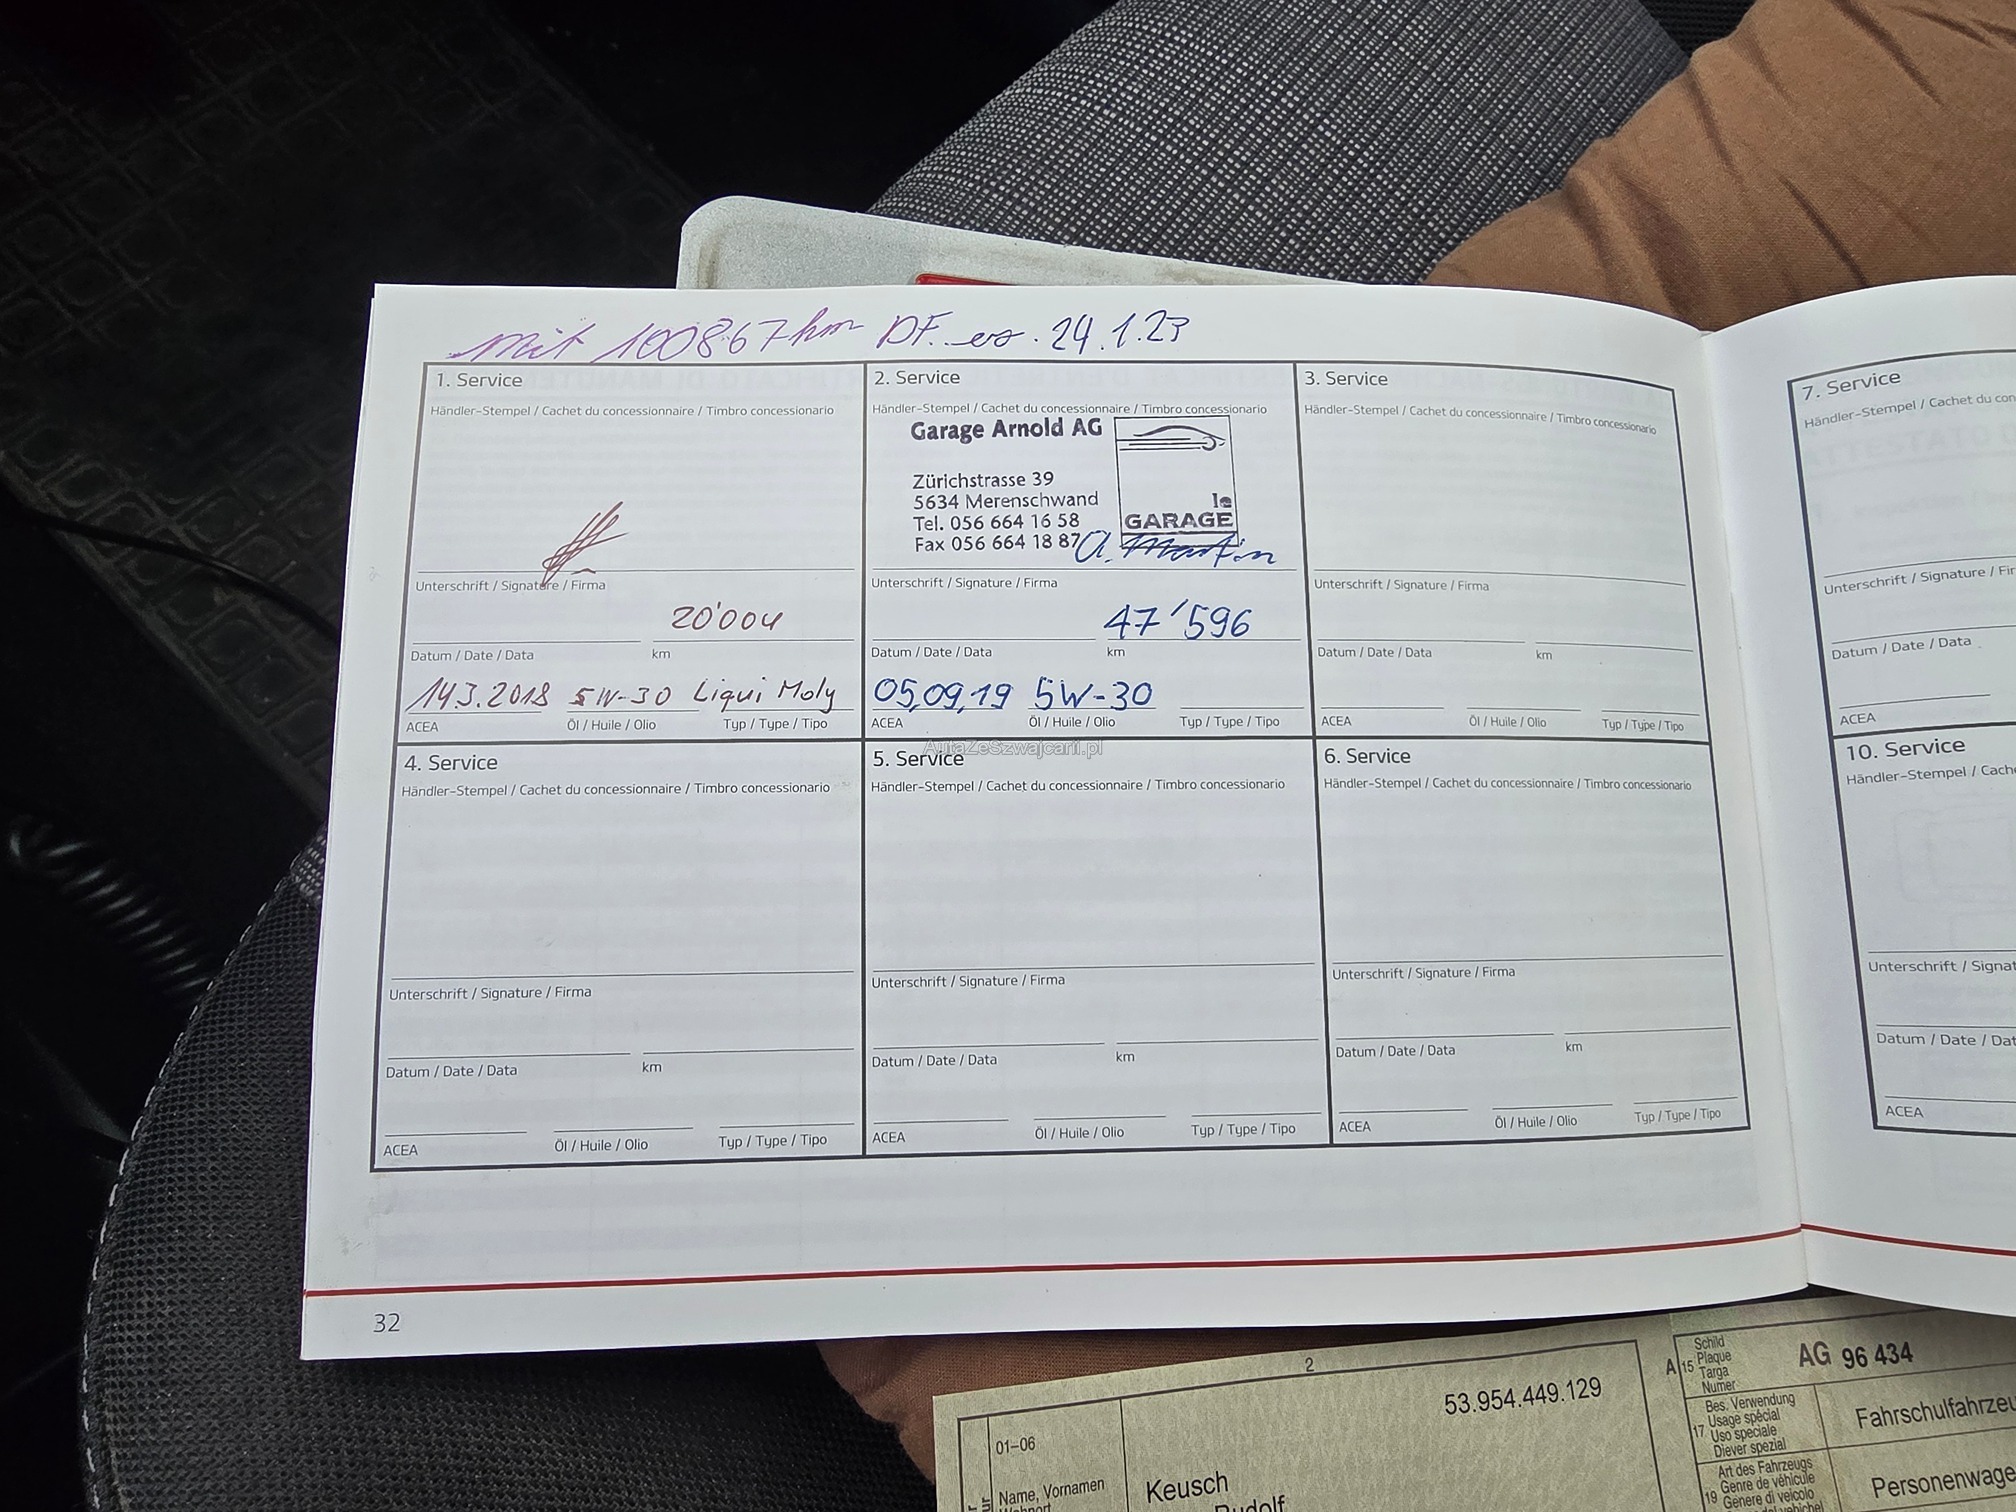 mit 100867 km DF. es. 24.1.23
1. Service
Händler-Stempel / Cachet du concessionnaire / Timbro concessionario
Unterschrift / Signature / Firma
20'004
Datum / Date / Data km
14.3.2018 5W-30 Liqui Moly
ACEA Öl / Huile / Olio Typ / Type / Tipo
2. Service
Händler-Stempel / Cachet du concessionnaire / Timbro concessionario
Garage Arnold AG
Zürichstrasse 39
5634 Merenschwand
Tel. 056 664 16 58
Fax 056 664 18 87
le
GARAGE
a. Martin
Unterschrift / Signature / Firma
47'596
Datum / Date / Data km
05.09.19 5W-30
ACEA Öl / Huile / Olio Typ / Type / Tipo
3. Service
Händler-Stempel / Cachet du concessionnaire / Timbro concessionario
Unterschrift / Signature / Firma
Datum / Date / Data km
ACEA Öl / Huile / Olio Typ / Type / Tipo
AutaZeSzwajcarii.pl
4. Service
Händler-Stempel / Cachet du concessionnaire / Timbro concessionario
Unterschrift / Signature / Firma
Datum / Date / Data km
ACEA Öl / Huile / Olio Typ / Type / Tipo
5. Service
Händler-Stempel / Cachet du concessionnaire / Timbro concessionario
Unterschrift / Signature / Firma
Datum / Date / Data km
ACEA Öl / Huile / Olio Typ / Type / Tipo
6. Service
Händler-Stempel / Cachet du concessionnaire / Timbro concessionario
Unterschrift / Signature / Firma
Datum / Date / Data km
ACEA Öl / Huile / Olio Typ / Type / Tipo
32
7. Service
Händler-Stempel / Cachet du con
Unterschrift / Signature / Fir
Datum / Date / Data
ACEA
10. Service
Händler-Stempel / Cach
Unterschrift / Signat
Datum / Date / Dat
ACEA
2
53.954.449.129
01-06
Name, Vornamen
Keusch
Rudolf
A 15 Schild
Plaque
Targa
Numer
AG 96 434
17 Bes. Verwendung
Usage spécial
Uso speciale
Diever spezial
Fahrschulfahrzeu
19 Art des Fahrzeugs
Genre de véhicule
Genere di veicolo
Personenwage